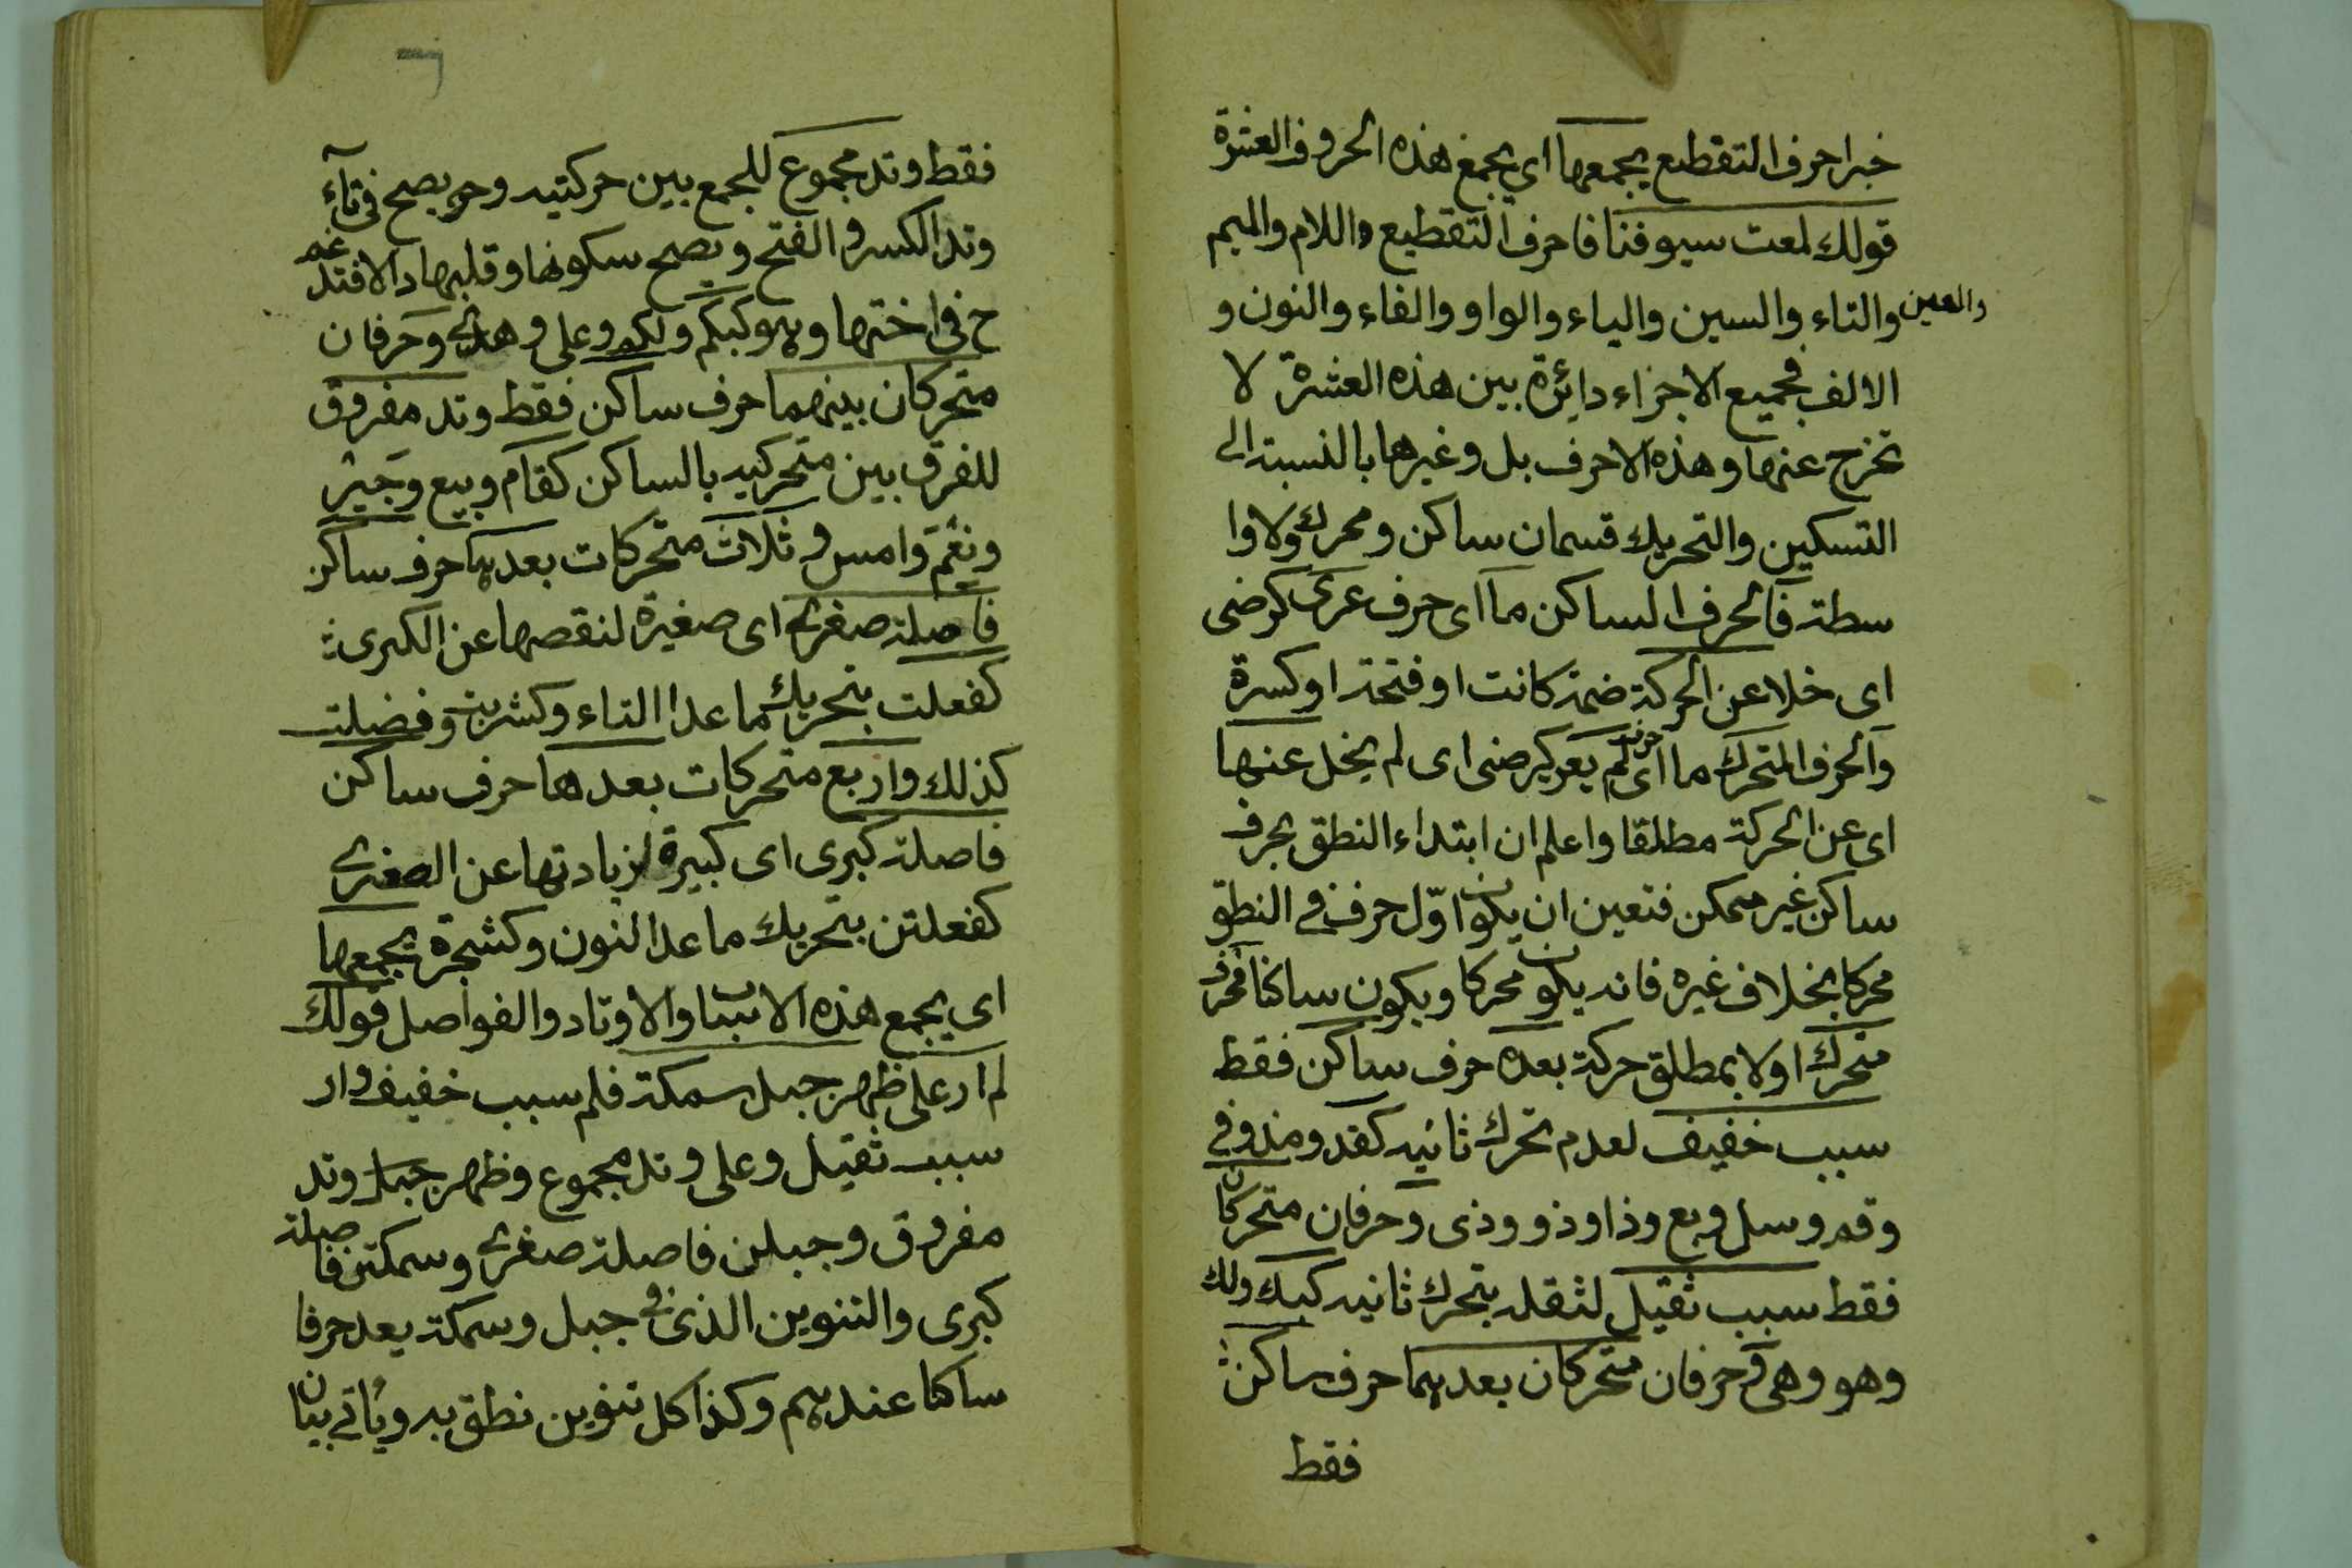 خبر احرف التقطيع يجمعها اي يجمع هذه الحروف العشرة
قولك لمعت سيوفنا فاحرف التقطيع واللام والميم
والعين والتاء والسين والياء والواو والفاء والنون و
الالف فجميع الاجزاء دائرة بين هذه العشرة لا
تخرج عنها وهذه الاحرف بل وغيرها بالنسبة الى
التسكين والتحريك قسمان ساكن ومحرك ولا وا
سطة فالحرف الساكن ما اى حرف عرى كرضى
اى خلا عن الحركة ضمة كانت او فتحة او كسرة
والحرف المتحرك ما اى حرف لم يعر كيرضى اى لم يخل عنها
اى عن الحركة مطلقا واعلم ان ابتداء النطق بحرف
ساكن غير ممكن فتعين ان يكون اول حرف في النطق
محركا بخلاف غيره فانه يكون محركا ويكون ساكنا فحرف
متحرك اولا بمطلق حركة بعده حرف ساكن فقط
سبب خفيف لعدم تحرك ثانيه كقد ومذ وفي
وقم وسل وبع وذا وذو وذى وحرفان متحركان
فقط سبب ثقيل لثقله بتحرك ثانيه كبك ولك
وهو وهى وحرفان متحركان بعدهما حرف ساكن
فقط
٦
فقط وتد مجموع للجمع بين حركتيه وحـ يصح في تآء
وتد الكسر والفتح ويصح سكونها وقلبها دالا فتدغم
ح في اختها وهو كبكم ولكم وعلى وهدى وحرفان
متحركان بينهما حرف ساكن فقط وتد مفروق
للفرق بين متحركيه بالساكن كقام وبيع وجير
ونعم وامس وثلاث متحركات بعدها حرف ساكن
فاصلة صغرى اى صغيرة لنقصها عن الكبرى
كفعلت بتحريك ما عدا التاء وكشربت وفضلت
كذلك واربع متحركات بعدها حرف ساكن
فاصلة كبرى اى كبيرة لزيادتها عن الصغرى
كفعلتن بتحريك ما عدا النون وكشجرة يجمعها
اى يجمع هذه الاسباب والاوتاد والفواصل قولك
لم ار على ظهر جبل سمكة فلم سبب خفيف وار
سبب ثقيل وعلى وتد مجموع وظهر جبل وتد
مفروق وجبلن فاصلة صغرى وسمكتن فاصلة
كبرى والتنوين الذى في جبل وسمكة يعد حرفا
ساكنا عندهم وكذا كل تنوين نطق به ويأتي بيان